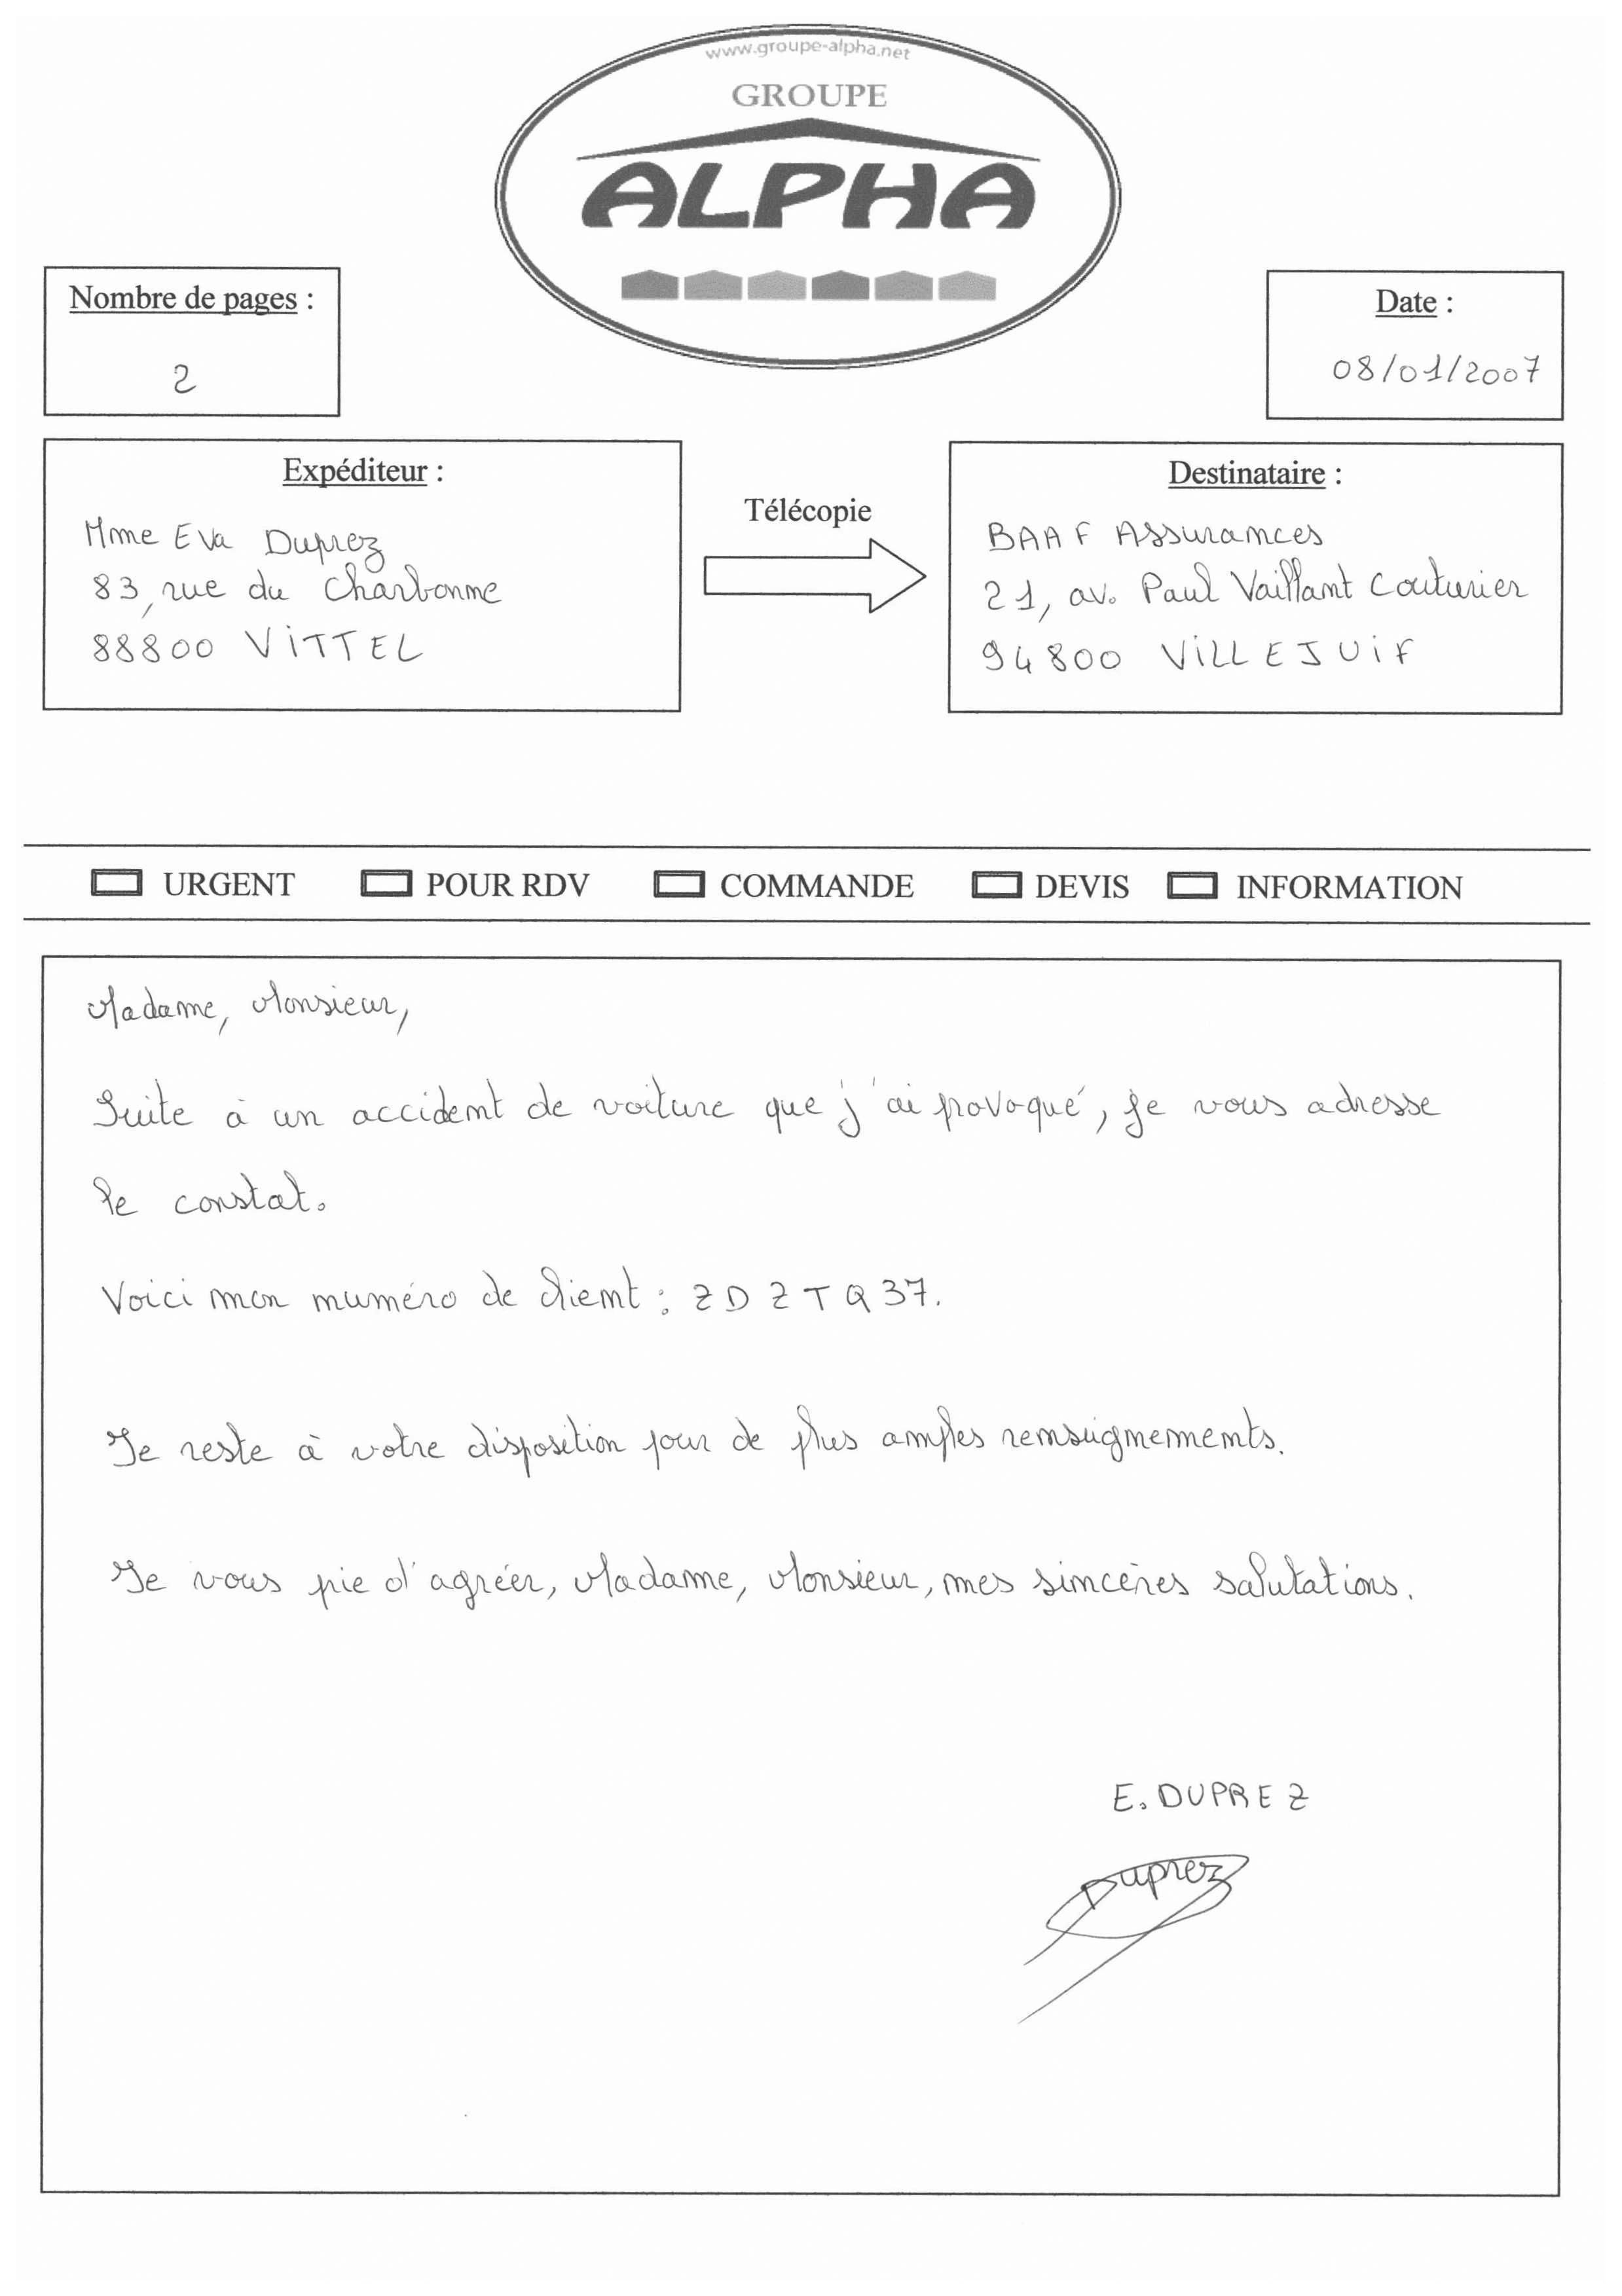 www.groupe-alpha.net
GROUPE
ALPHA
Nombre de pages :
2
Date :
08/01/2007
Expéditeur :
Mme Eva Duprez
83, rue du Charbonne
88800 ViTTEL
Télécopie
Destinataire :
BAAF Assurances
21, av. Paul Vaillant Couturier
94800 ViLLEJUiF
URGENT POUR RDV COMMANDE DEVIS INFORMATION
Madame, Monsieur,
Suite à un accident de voiture que j'ai provoqué, je vous adresse
le constat.
Voici mon numéro de client : ZDZTQ37.
Je reste à votre disposition pour de plus amples renseignements.
Je vous pie d'agréer, Madame, Monsieur, mes sincères salutations.
E. DUPREZ
Duprez